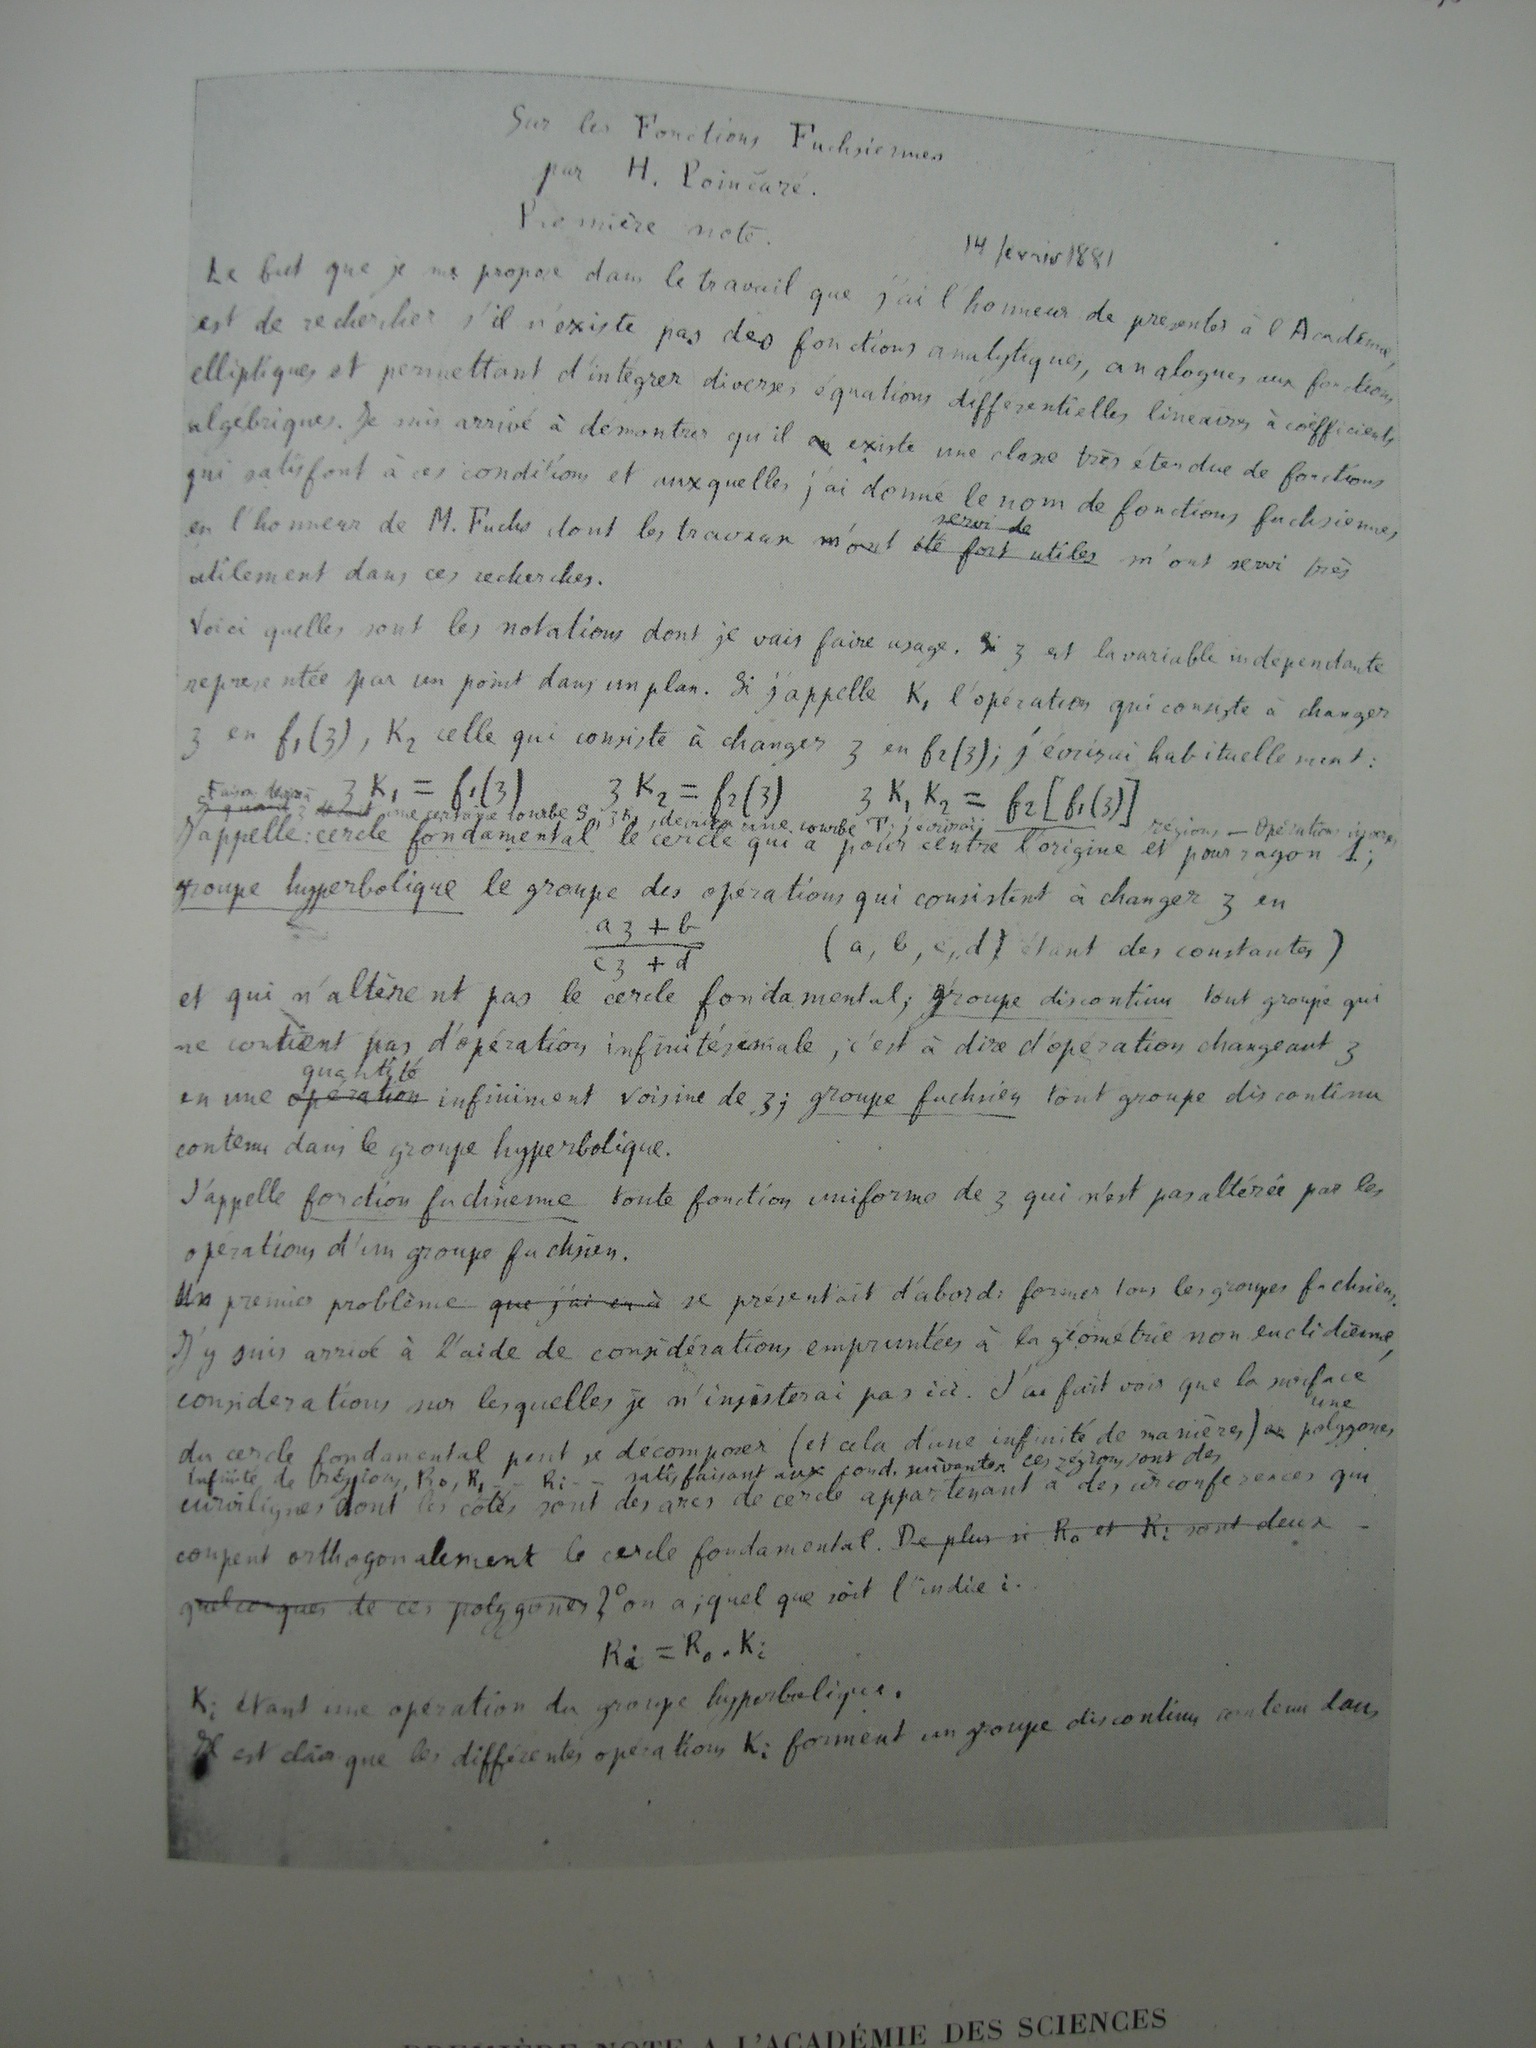 Sur les Fonctions Fuchsiennes
par H. Poincaré.
Première note.
14 fevrier 1881
Le but que je me propose dans le travail que j'ai l'honneur de presenter à l'Académie,
est de rechercher s'il n'existe pas des fonctions analytiques, analogues aux fonctions
elliptiques et permettant d'intégrer diverses équations différentielles linéaires à coëfficients
algébriques. Je suis arrivé à démontrer qu'il en existe une classe très étendue de fonctions
qui satisfont à ces conditions et auxquelles j'ai donné le nom de fonctions fuchsiennes
servi de
en l'honneur de M. Fuchs dont les travaux m'ont été fort utiles m'ont servi très
utilement dans ces recherches.
Voici quelles sont les notations dont je vais faire usage. Si z est la variable indépendante
représentée par un point dans un plan. Si j'appelle K₁ l'opération qui consiste à changer
z en f₁(z), K₂ celle qui consiste à changer z en f₂(z); j'écrirai habituellement:
z K₁ = f₁(z) z K₂ = f₂(z) z K₁ K₂ = f₂[f₁(z)]
Si quand z décrit une certaine courbe S, z K₁ décrira une courbe T; j'écrirai: régions — Opérations inverses
J'appelle: cercle fondamental le cercle qui a pour centre l'origine et pour rayon 1;
groupe hyperbolique le groupe des opérations qui consistent à changer z en
az + b
cz + d
(a, b, c, d étant des constantes)
et qui n'altèrent pas le cercle fondamental; groupe discontinu tout groupe qui
ne contient pas d'opération infinitésimale; c'est à dire d'opération changeant z
quantité
en une opération infiniment voisine de z; groupe fuchsien tout groupe discontinu
contenu dans le groupe hyperbolique.
J'appelle fonction fuchsienne toute fonction uniforme de z qui n'est pas altérée par les
opérations d'un groupe fuchsien.
Un premier problème que j'ai eu à se présentait d'abord: former tous les groupes fuchsiens.
J'y suis arrivé à l'aide de considérations empruntées à la géométrie non euclidienne,
considerations sur lesquelles je n'insisterai pas ici. J'ai fait voir que la surface
une
du cercle fondamental peut se décomposer (et cela d'une infinité de manières) en polygones
infinité de régions, R₀, R₁ -- Ri -- satisfaisant aux cond. suivantes ces régions sont des
curvilignes dont les côtés sont des arcs de cercle appartenant à des circonférences qui
coupent orthogonalement le cercle fondamental. De plus si R₀ et Ri sont deux
quelconques de ces polygones 2° on a; quel que soit l'indice i.
Ri = R₀.Ki
Ki étant une opération du groupe hyperbolique.
Il est clair que les différentes opérations Ki forment un groupe discontinu contenu dans
PREMIÈRE NOTE A L'ACADÉMIE DES SCIENCES